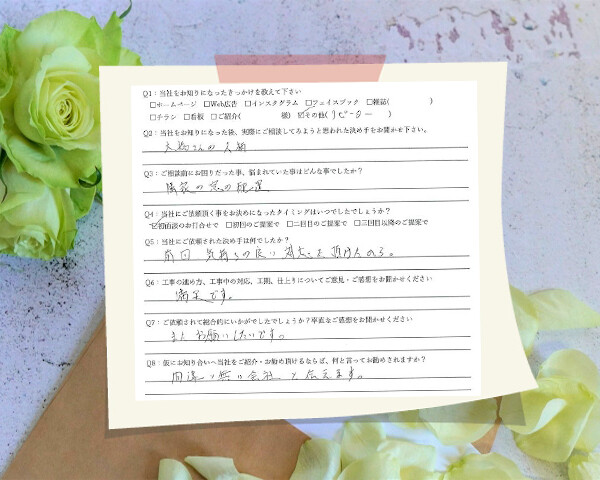 Q1：当社をお知りになったきっかけを教えて下さい
□ホームページ □Web広告 □インスタグラム □フェイスブック □雑誌( )
□チラシ □看板 □ご紹介( 様) ☑その他(リピーター )
Q2：当社をお知りになった後、実際にご相談してみようと思われた決め手をお聞かせ下さい。
さんの人柄
Q3：ご相談前にお困りだった事、悩まれていた事はどんな事でしたか？
隣家の窓の位置
Q4：当社にご依頼頂く事をお決めになったタイミングはいつでしたでしょうか？
☑初面談のお日合せで □初回のご提案で □二回目のご提案で □三回目以降のご提案で
Q5：当社にご依頼された決め手は何でしたか？
前回 気持ちの良い 対応を 頂けたので。
Q6：工事の進め方、工事中の対応、工期、仕上りについてご意見・ご感想をお聞かせください
満足です。
Q7：ご依頼されて総合的にいかがでしたでしょうか？率直なご感想をお聞かせください
また お願いしたいです。
Q8：仮にお知り合いへ当社をご紹介・お勧め頂けるならば、何と言ってお勧めされますか？
間違い無い会社 と伝えます。